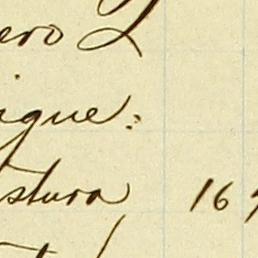 ero L
igue:
stura 16